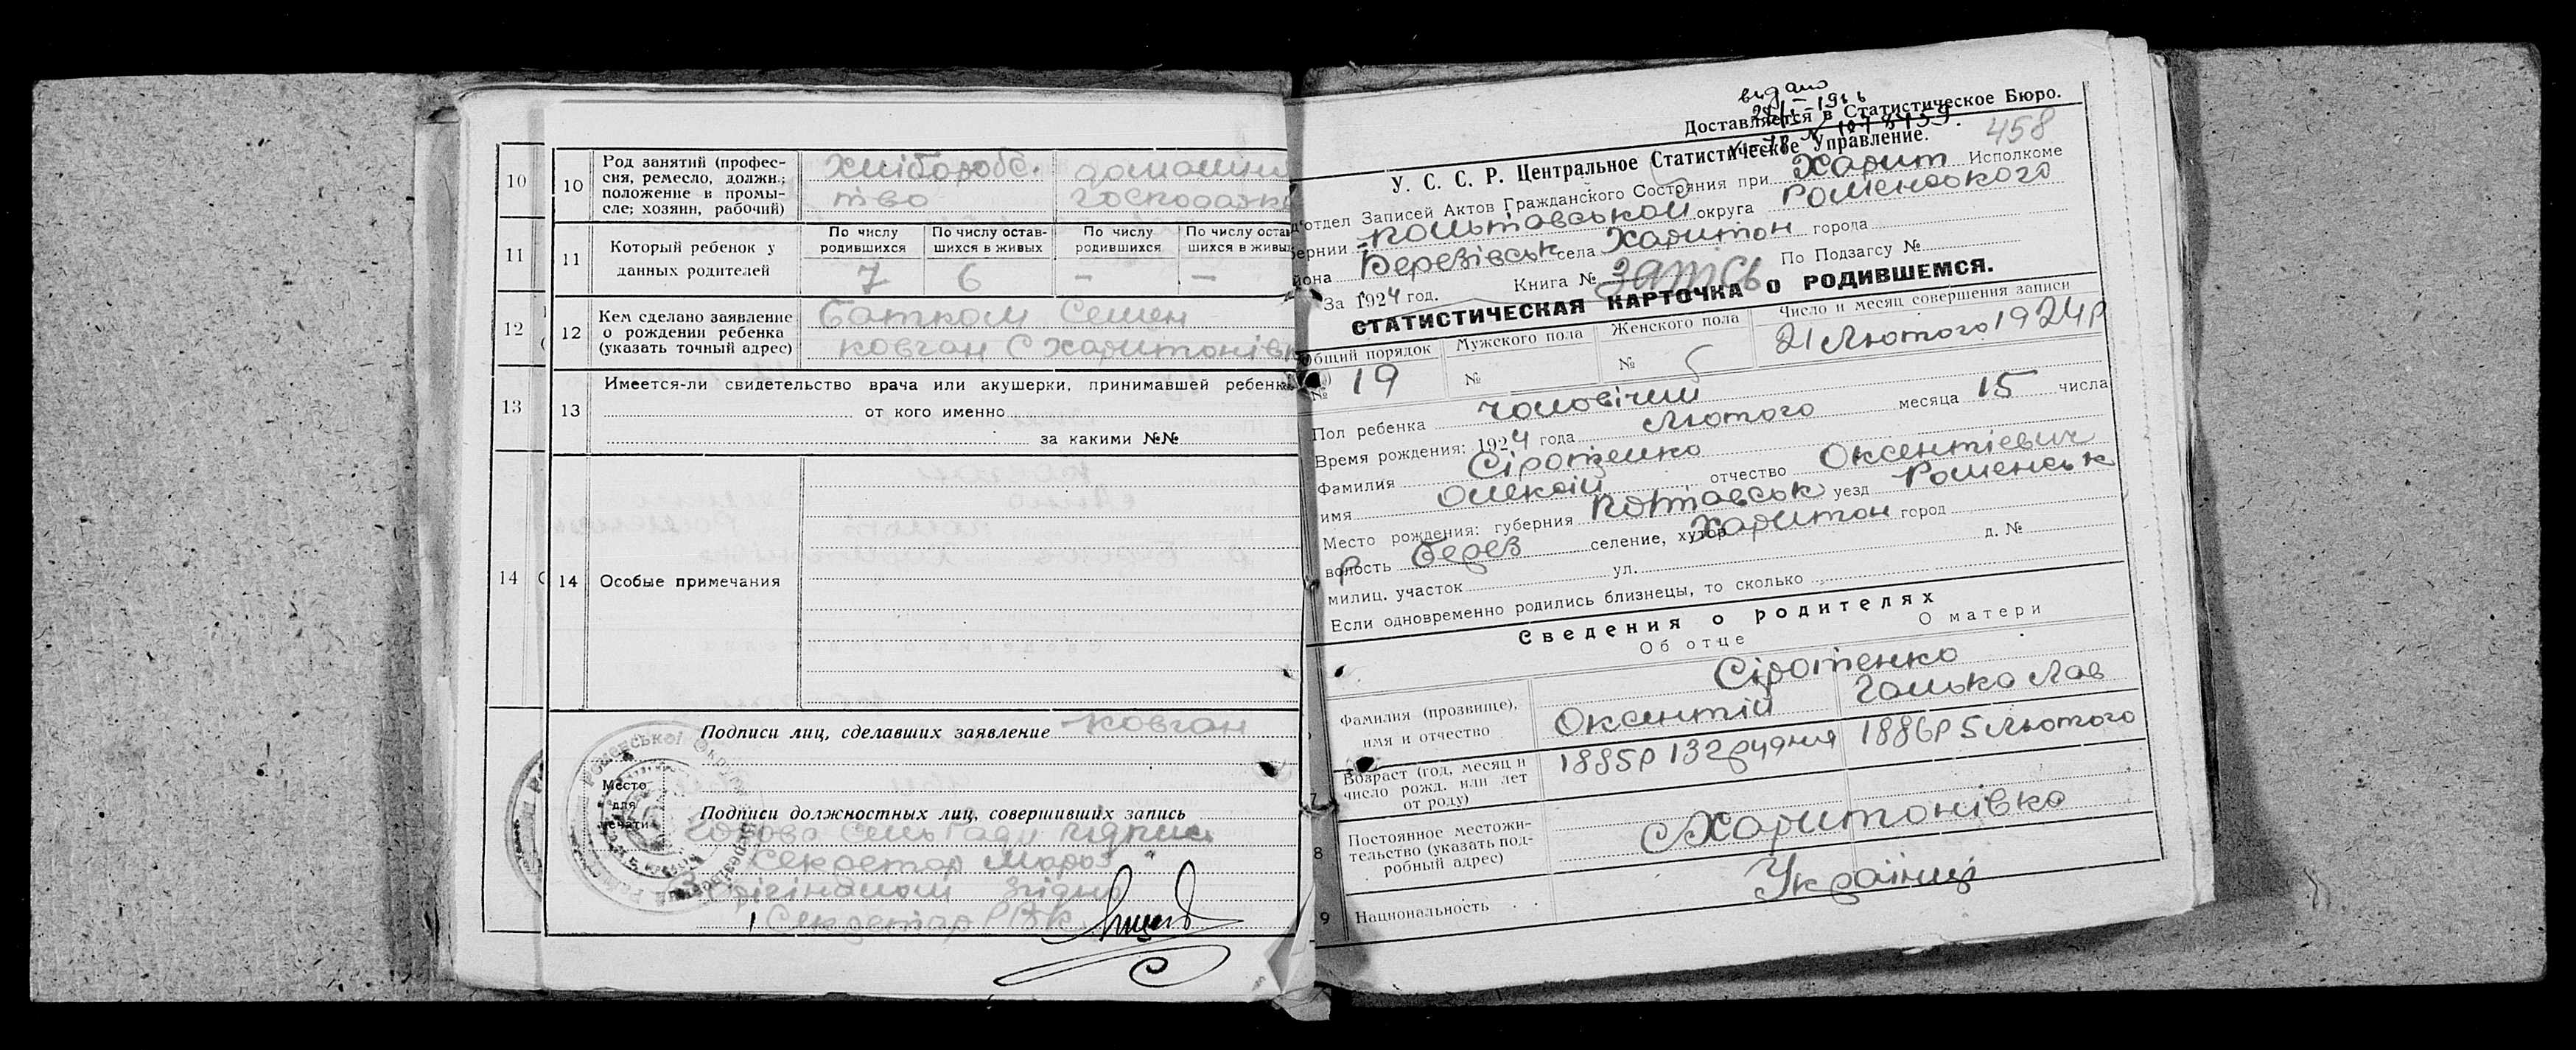 10
11
12
13
14
10 Род занятий (профес-
сия, ремесло, должн.;
положение в промы-
сле; хозяин, рабочий)
Хліборобс.
тво
домашнє
господарк
11 Который ребенок у
данных родителей
По числу
родившихся
По числу остав-
шихся в живых
По числу
родившихся
По числу оста
шихся в живы
7 6 – –
12 Кем сделано заявление
о рождении ребенка
(указать точный адрес)
Батком Семен
Ковган С Харитонівк
13 Имеется-ли свидетельство врача или акушерки, принимавшей ребенк
от кого именно
за какими №№
14 Особые примечания
Подписи лиц, сделавших заявление Ковган
Место
для
печати
Подписи должностных лиц, совершивших запись
Голова Сель Ради підписи
Секретар Мороз "
З орігіналом згідно
Секретар РВК
видано
Доставляется в Статистическое Бюро.
458
У. С. С. Р. Центральное Статистическое Управление.
отдел Записей Актов Гражданского Состояния при Харит Исполкоме
бернии Полтавськой округа Роменського
йона Березівськ села Харитон города
За 1924 год. Книга № запись По Подзагсу №
СТАТИСТИЧЕСКАЯ КАРТОЧКА О РОДИВШЕМСЯ.
Общий порядок
№ 19
Мужского пола
№
Женского пола
№
Число и месяц совершения записи
21 Лютого 1924р
Пол ребенка чоловічий
Время рождения: 1924 года Лютого месяца 15 числа
Фамилия Сіротенко отчество Оксентіевич
имя Олексій
Место рождения: губерния Полтавськ уезд Роменськ
волость р Берез селение, хутор Харитон город
милиц. участок ул. д. №
Если одновременно родились близнецы, то сколько
Сведения о родителях
Об отце
О матери
Фамилия (прозвище),
имя и отчество
Сіротенко
Оксентій
Галька Лав
7 Возраст (год, месяц и
число рожд. или лет
от роду)
1885р 13 грудня
1886р 5 Лютого
8 Постоянное местожи-
тельство (указать под-
робный адрес)
С Харитонівка
9 Национальность
Українці